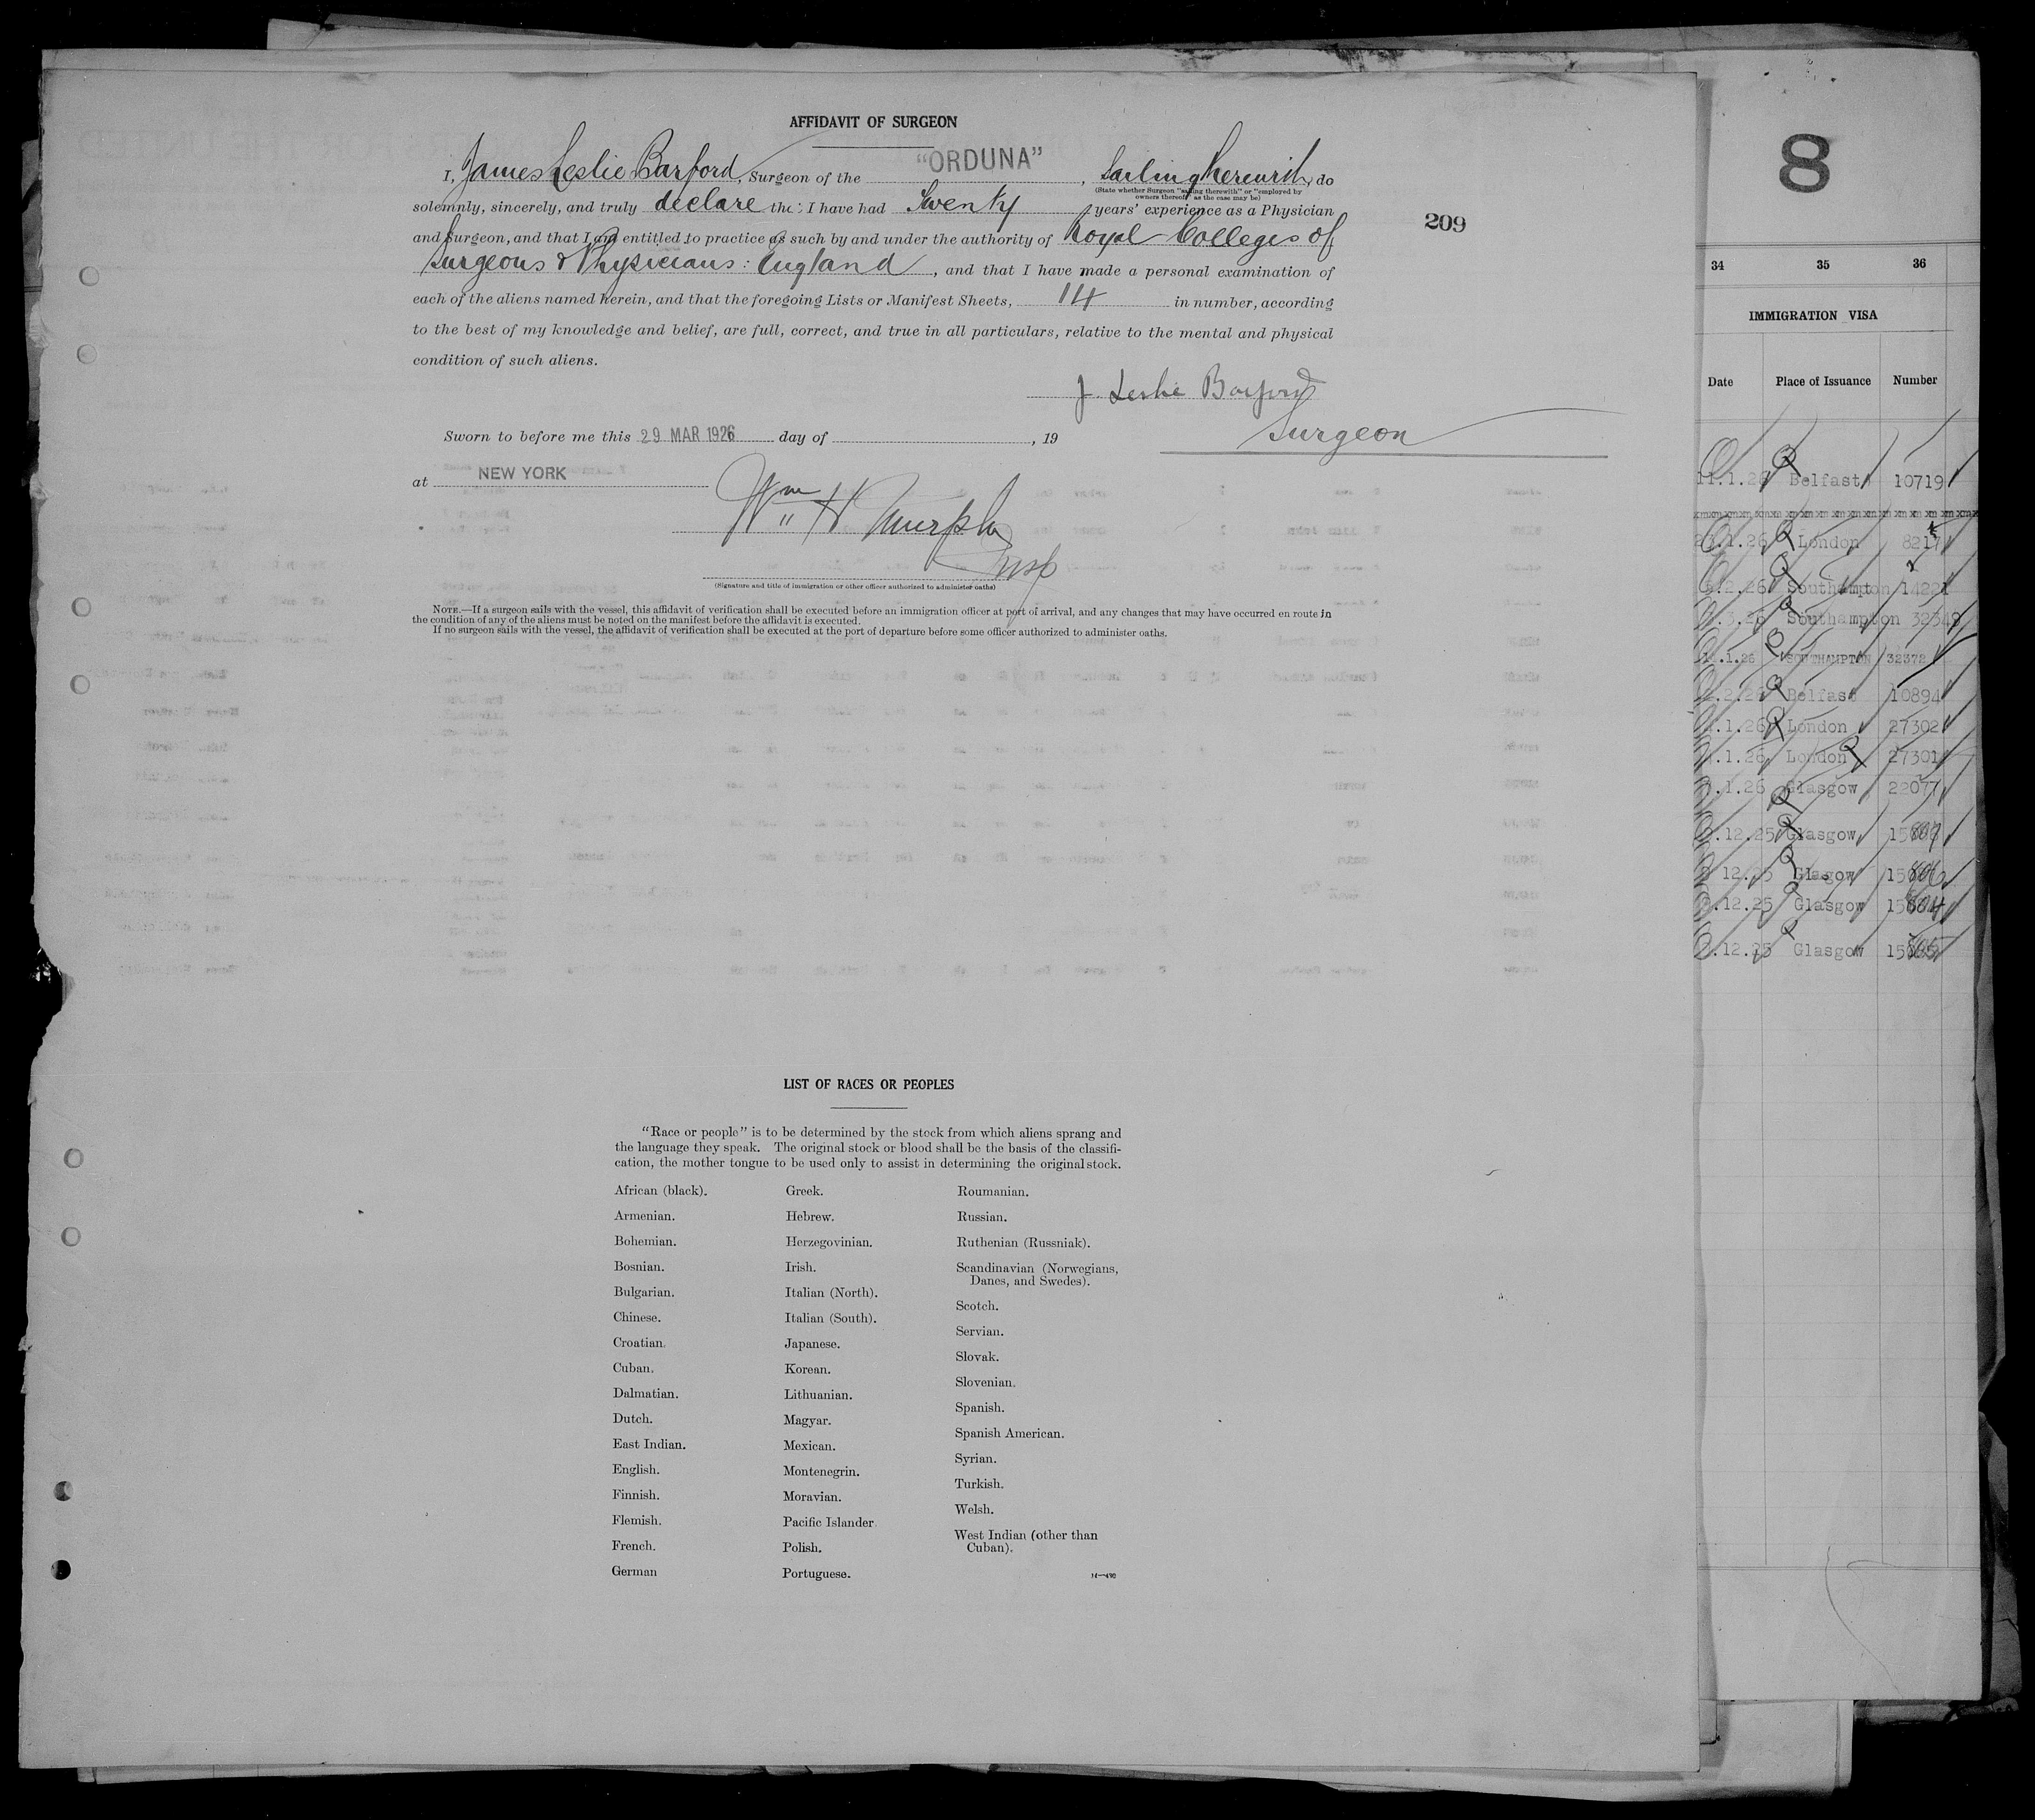 AFFIDAVIT OF SURGEON
I, James Leslie Barford, Surgeon of the "ORDUNA", Sailing therewith, do
(State whether Surgeon "sailing therewith" or "employed by
owners thereof" as the case may be)
solemnly, sincerely, and truly declare tha: I have had Twenty years' experience as a Physician
and Surgeon, and that I am entitled to practice as such by and under the authority of Royal Colleges of
Surgeons & Physicians: England, and that I have made a personal examination of
each of the aliens named herein, and that the foregoing Lists or Manifest Sheets, 14 in number, according
to the best of my knowledge and belief, are full, correct, and true in all particulars, relative to the mental and physical
condition of such aliens.
J. Leslie Barford
Surgeon
Sworn to before me this 29 MAR 1926 day of , 19
at NEW YORK
Wm H Murphy
Insp
(Signature and title of immigration or other officer authorized to administer oaths)
NOTE.—If a surgeon sails with the vessel, this affidavit of verification shall be executed before an immigration officer at port of arrival, and any changes that may have occurred en route in
the condition of any of the aliens must be noted on the manifest before the affidavit is executed.
If no surgeon sails with the vessel, the affidavit of verification shall be executed at the port of departure before some officer authorized to administer oaths.
209
LIST OF RACES OR PEOPLES
"Race or people" is to be determined by the stock from which aliens sprang and
the language they speak. The original stock or blood shall be the basis of the classifi-
cation, the mother tongue to be used only to assist in determining the original stock.
African (black).
Armenian.
Bohemian.
Bosnian.
Bulgarian.
Chinese.
Croatian.
Cuban.
Dalmatian.
Dutch.
East Indian.
English.
Finnish.
Flemish.
French.
German
Greek.
Hebrew.
Herzegovinian.
Irish.
Italian (North).
Italian (South).
Japanese.
Korean.
Lithuanian.
Magyar.
Mexican.
Montenegrin.
Moravian.
Pacific Islander.
Polish.
Portuguese.
Roumanian.
Russian.
Ruthenian (Russniak).
Scandinavian (Norwegians,
Danes, and Swedes).
Scotch.
Servian.
Slovak.
Slovenian.
Spanish.
Spanish American.
Syrian.
Turkish.
Welsh.
West Indian (other than
Cuban).
8
34 35 36
IMMIGRATION VISA
Date Place of Issuance Number
Belfast 10719
London 8217
Southampton 14221
Southampton
SOUTHAMPTON 32372
Belfast 10894
London 27302
London 27301
Glasgow 22077
12.25 Glasgow
12.25 Glasgow
12.25 Glasgow
12.25 Glasgow